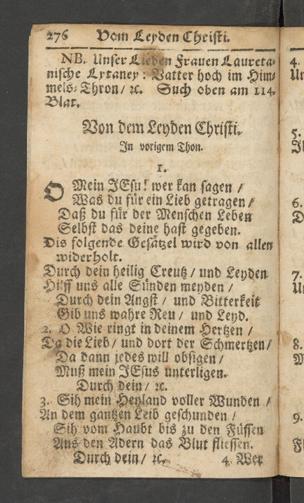 276 Vom Leyden Christi.
NB. Unser Lieben Frauen Laureta-
nische Lytaney: Vatter hoch im Him-
mels-Thron/ ꝛc. Such oben am 114.
Blat.
Von dem Leyden Christi.
In vorigem Thon.
1.
O Mein JEsu! wer kan sagen/
Was du für ein Lieb getragen/
Daß du für der Menschen Leben
Selbst das deine hast gegeben.
Dis folgende Gesätzel wird von allen
widerholt.
Durch dein heilig Creutz/ und Leyden
Hilff uns alle Sünden meyden/
Durch dein Angst/ und Bitterkeit
Gib uns wahre Reu/ und Leyd.
2. O Wie ringt in deinem Hertzen/
Da die Lieb/ und dort der Schmertzen/
Da dann jedes will obsigen/
Muß mein JEsus unterligen.
Durch dein/ ꝛc.
3. Sih mein Heyland voller Wunden/
An dem gantzen Leib geschunden/
Sih vom Haubt bis zu den Füssen
Aus den Adern das Blut fliessen.
Durch dein/ ꝛc. 4. Wer